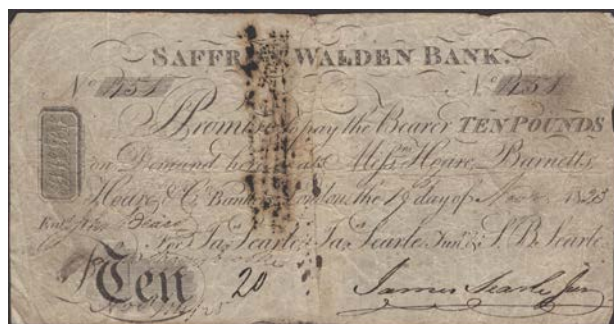 SAFFRON WALDEN BANK.
No 1451 No 1451
I Promise to pay the Bearer TEN POUNDS
on Demand here or at Messrs Hoare, Barnetts,
Hoare & Co Bankers London, the 19 day of Novr 1825
Entd For Jas Searle, Jas Searle Junr & S. B. Searle.
Ten 20 James Searle Junr